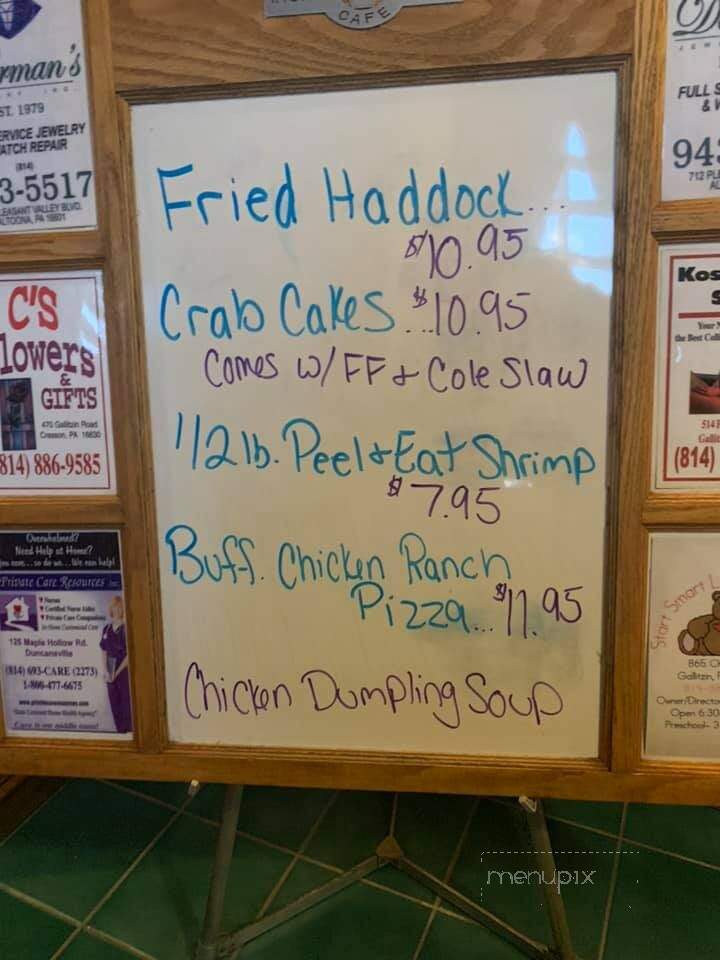 CAFE
Fried Haddock...
$10.95
Crab Cakes...$10.95
Comes w/ FF & Cole Slaw
1/2 lb. Peel & Eat Shrimp
$7.95
Buff. Chicken Ranch
Pizza...$11.95
Chicken Dumpling Soup
rman's
EST. 1979
ERVICE JEWELRY
ATCH REPAIR
(814)
3-5517
EASANT VALLEY BLVD.
ALTOONA, PA 16601
C'S
lowers
&
GIFTS
470 Gallitzin Road
Cresson, PA 16630
814) 886-9585
Overwhelmed?
Need Help at Home?
Private Care Resources
Nurses
Certified Nurse Aides
Private Care Companions
125 Maple Hollow Rd.
Duncansville
(814) 693-CARE (2273)
1-800-477-6675
FULL S
& W
943
712 PL
Kos
S
the Best Coll
514 
Galli
(814)
Start Smart L
865 
Gallitzin, P
Owner/Directo
Open 6:30
Preschool- 3
menupix